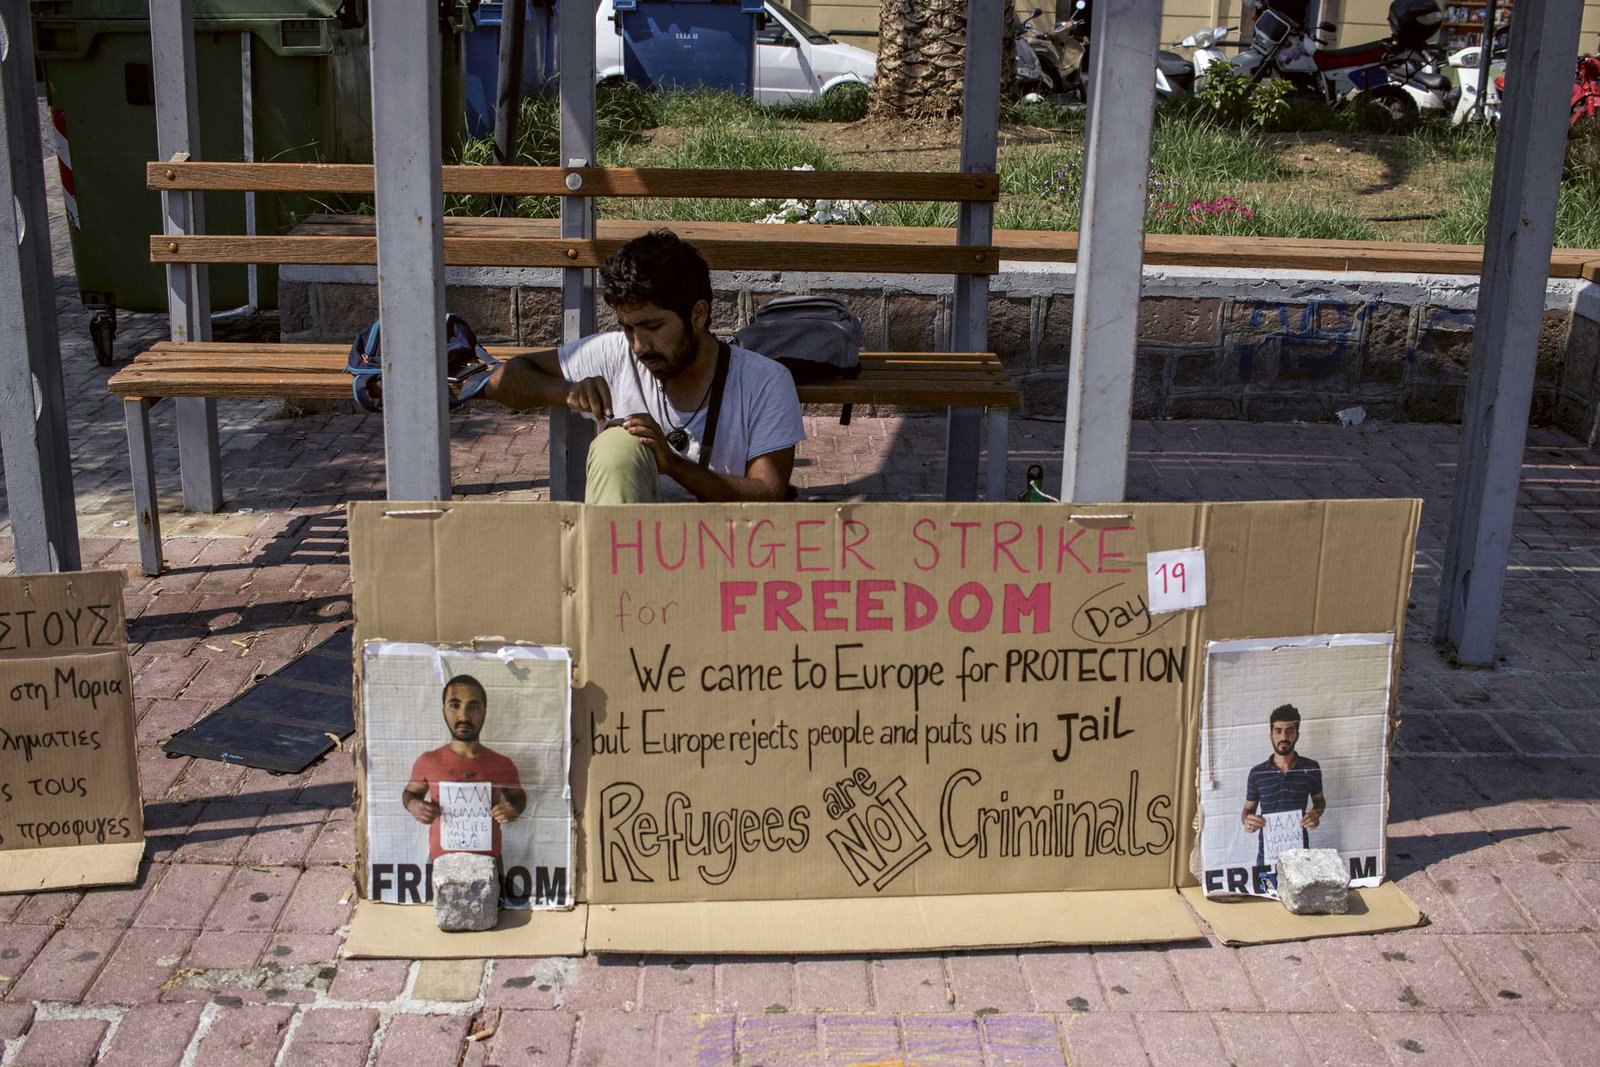 ΣΤΟΥΣ
στη Μορια
ληματιες
ς τους
ς προσφυγες
HUNGER STRIKE
for FREEDOM Day 19
We came to Europe for PROTECTION
but Europe rejects people and puts us in Jail
Refugees are NOT Criminals
I AM
HUMAN
MY LIFE
HAS A
VALUE
FR OM
I AM
HUMAN
FRE M